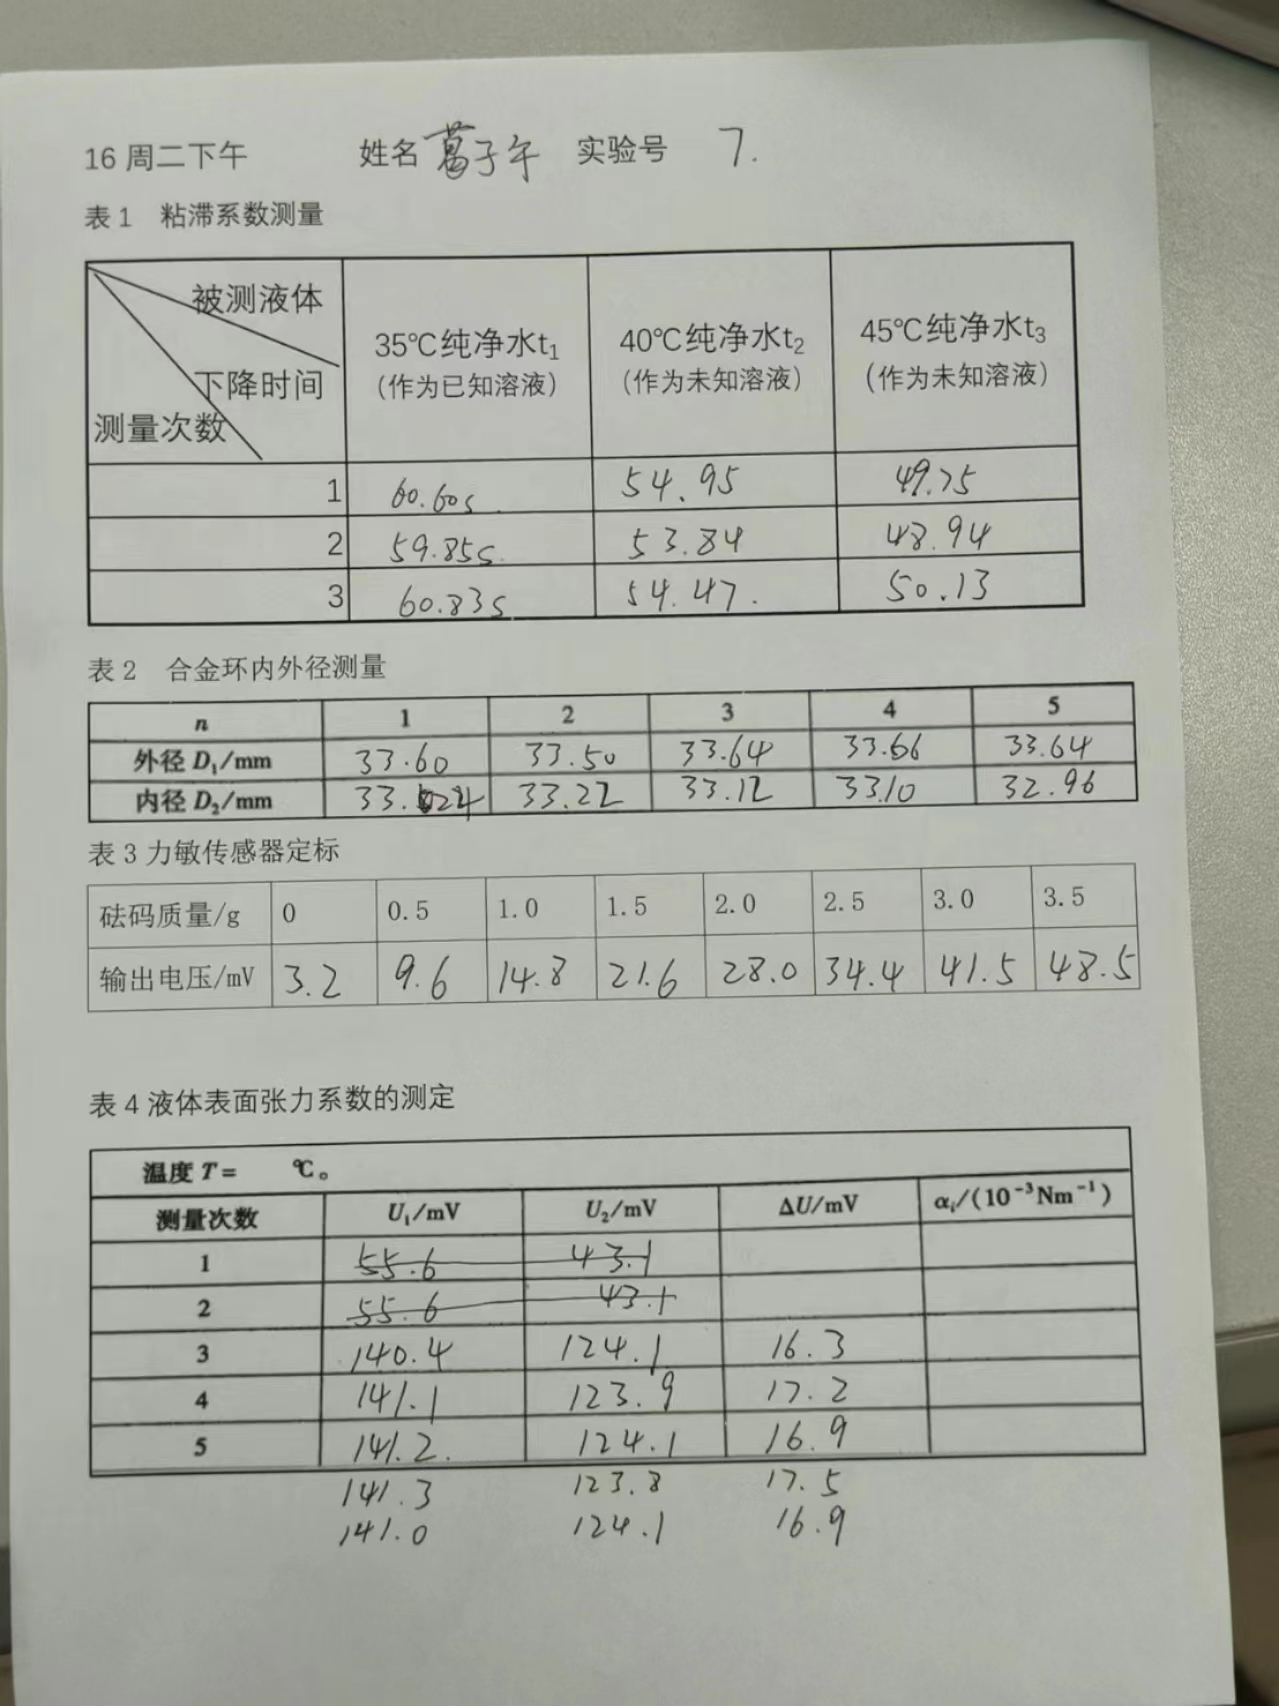 16 周二下午 姓名 葛子午 实验号 7.
表 1 粘滞系数测量
被测液体
下降时间
测量次数
35℃纯净水t₁ (作为已知溶液)
40℃纯净水t₂ (作为未知溶液)
45℃纯净水t₃ (作为未知溶液)
1 60.60s 54.95 49.75
2 59.85s. 53.84 48.94
3 60.83s 54.47. 50.13
表 2 合金环内外径测量
n 1 2 3 4 5
外径 D₁/mm 33.60 33.50 33.64 33.66 33.64
内径 D₂/mm 33.22 33.12 33.10 32.96
表 3 力敏传感器定标
砝码质量/g 0 0.5 1.0 1.5 2.0 2.5 3.0 3.5
输出电压/mV 3.2 9.6 14.8 21.6 28.0 34.4 41.5 48.5
表 4 液体表面张力系数的测定
温度 T= ℃。
测量次数 U₁/mV U₂/mV ΔU/mV αᵢ/(10⁻³Nm⁻¹)
1 55.6 43.1
2 55.6 43.1
3 140.4 124.1 16.3
4 141.1 123.9 17.2
5 141.2. 124.1 16.9
141.3 123.8 17.5
141.0 124.1 16.9